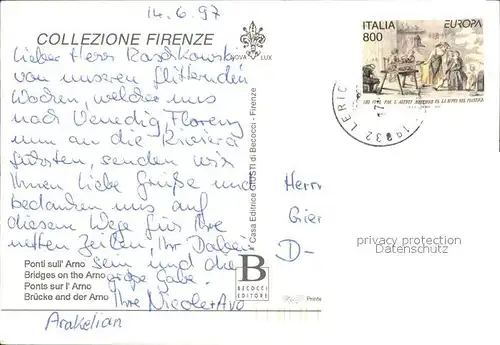 14.6.97
COLLEZIONE FIRENZE
NOVA LUX
Lieber Herr Raschkowski
von unseren Flitternden
Wochen, welche uns
nach Venedig, Florenz
nun an die Riviera
führten, senden wir
Ihnen liebe Grüße und
bedanken uns auf
diesem Wege für Ihre
netten Zeilen, Ihr Dabei
sein und die
große Gabe.
Ihre Nicole + Avo
Arakelian
Ponti sull' Arno
Bridges on the Arno
Ponts sur l' Arno
Brücke and der Arno
Casa Editrice GIUSTI di Becocci - Firenze
B
BECOCCI
EDITORE
Printe
ITALIA
800
EUROPA
19032 LERIC
17
Herrn
Gier
D-
privacy protection
Datenschutz